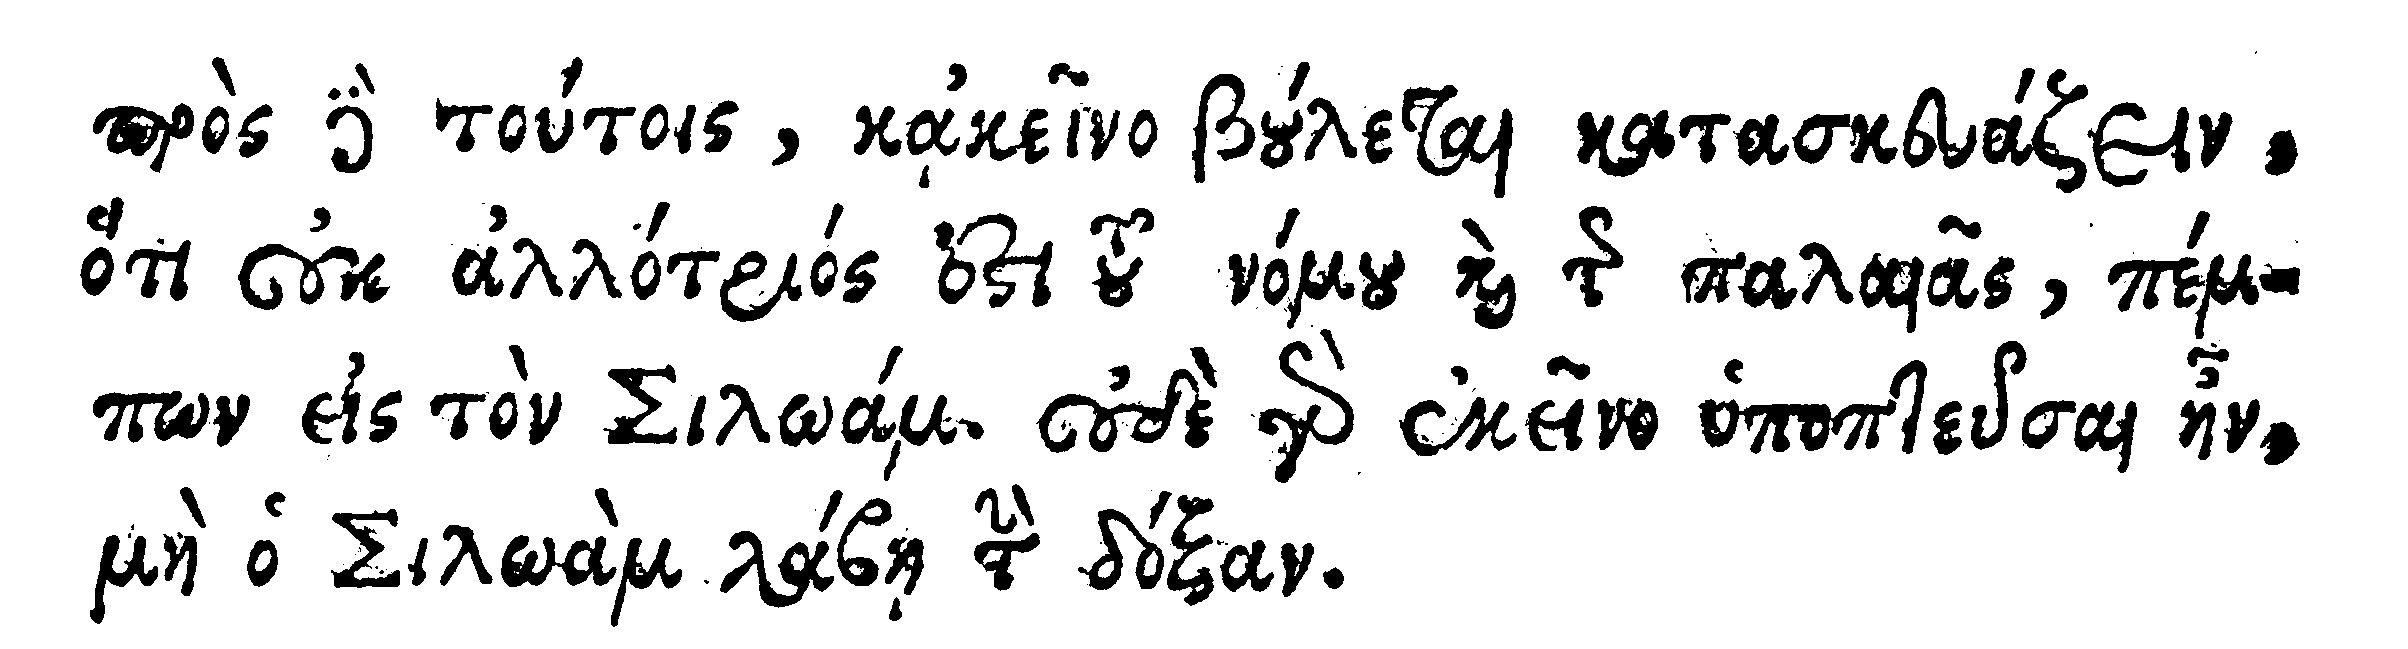 πρὸς δὲ τούτοις, κᾀκεῖνο βούλεται κατασκευάζειν,
ὅτι οὐκ ἀλλότριός ἐστι τοῦ νόμου καὶ τῆς παλαιᾶς, πέμ-
πων εἰς τὸν Σιλωάμ. οὐδὲ γὰρ ἐκεῖνο ὑποπτεῦσαι ἦν,
μὴ ὁ Σιλωὰμ λάβῃ τὴν δόξαν.